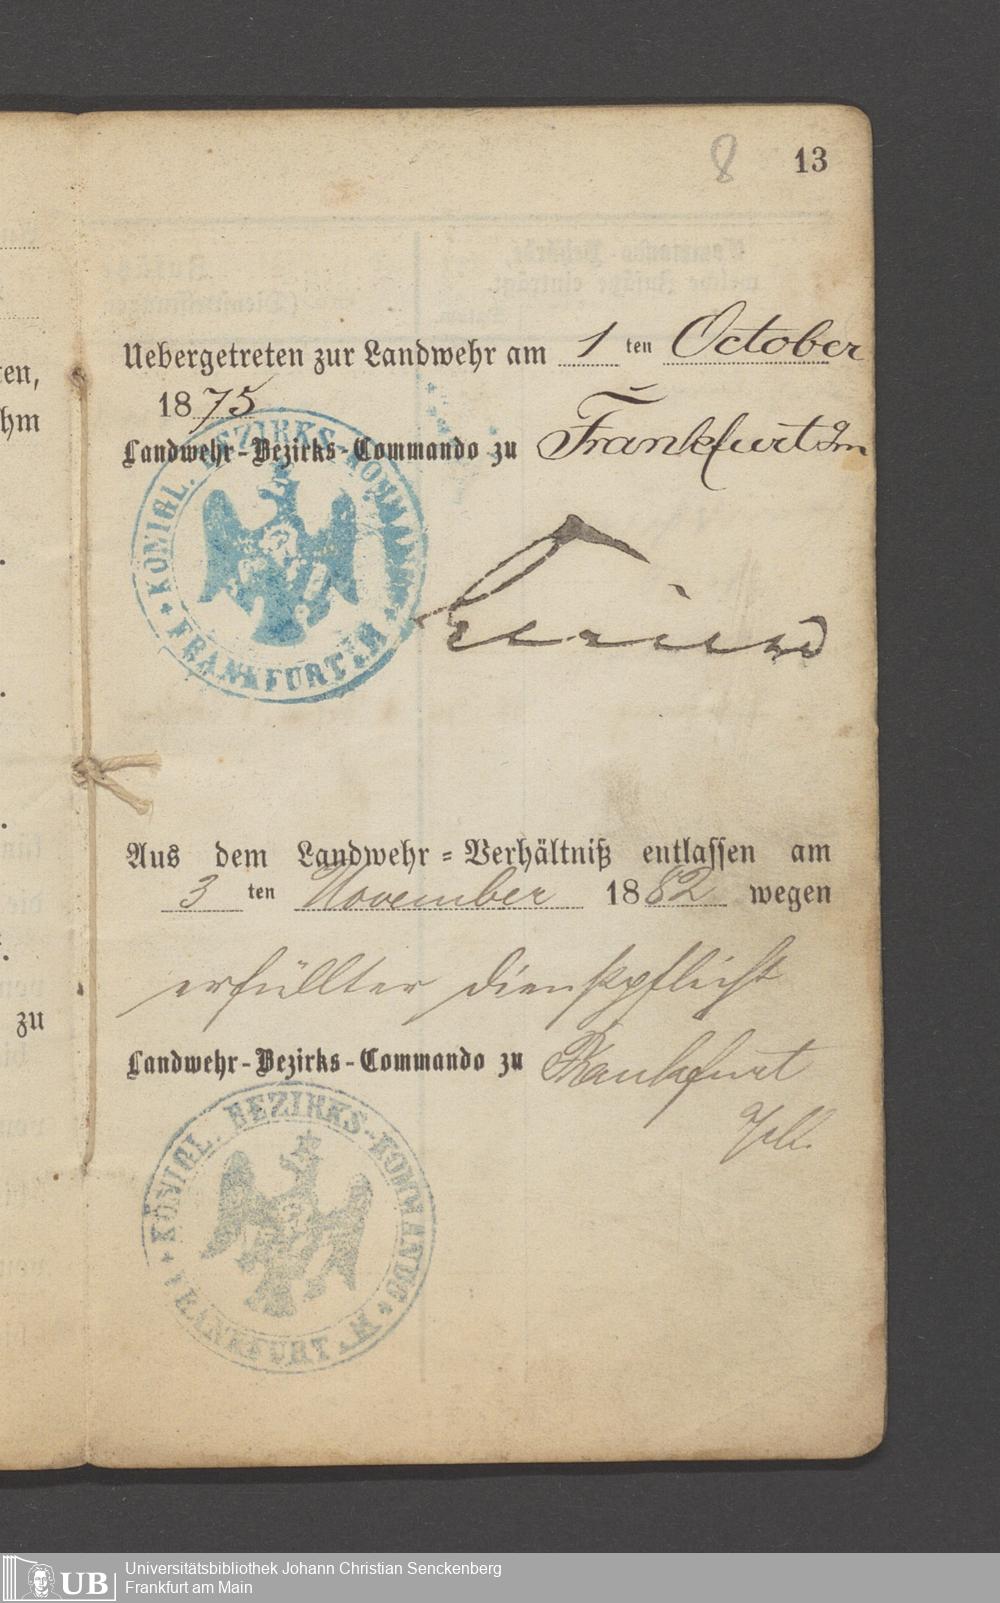 8 13
Uebergetreten zur Landwehr am 1 ten October
1875
Landwehr-Bezirks-Commando zu Frankfurt a/m
KÖNIGL. BEZIRKS-KOMMANDO
FRANKFURT A/M
Aus dem Landwehr-Verhältniß entlassen am
3 ten November 1882 wegen
erfüllter Dienstpflicht
Landwehr-Bezirks-Commando zu Frankfurt
KÖNIGL. BEZIRKS-KOMMANDO
FRANKFURT A/M
en,
hm
zu
UB
Universitätsbibliothek Johann Christian Senckenberg
Frankfurt am Main